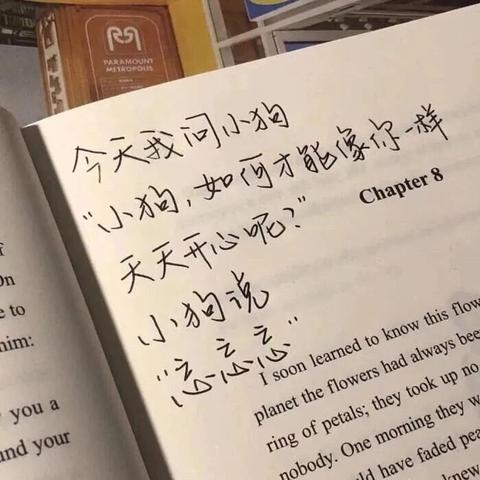 PARAMOUNT
METROPOLIS
今天我问小狗
"小狗,如何才能像你一样
天天开心呢?"
小狗说
"忘忘忘"
Chapter 8
On
e to
him:
you a
and your
I soon learned to know this flow
planet the flowers had always bee
ring of petals; they took up no
nobody. One morning they w
ld have faded pea
knew